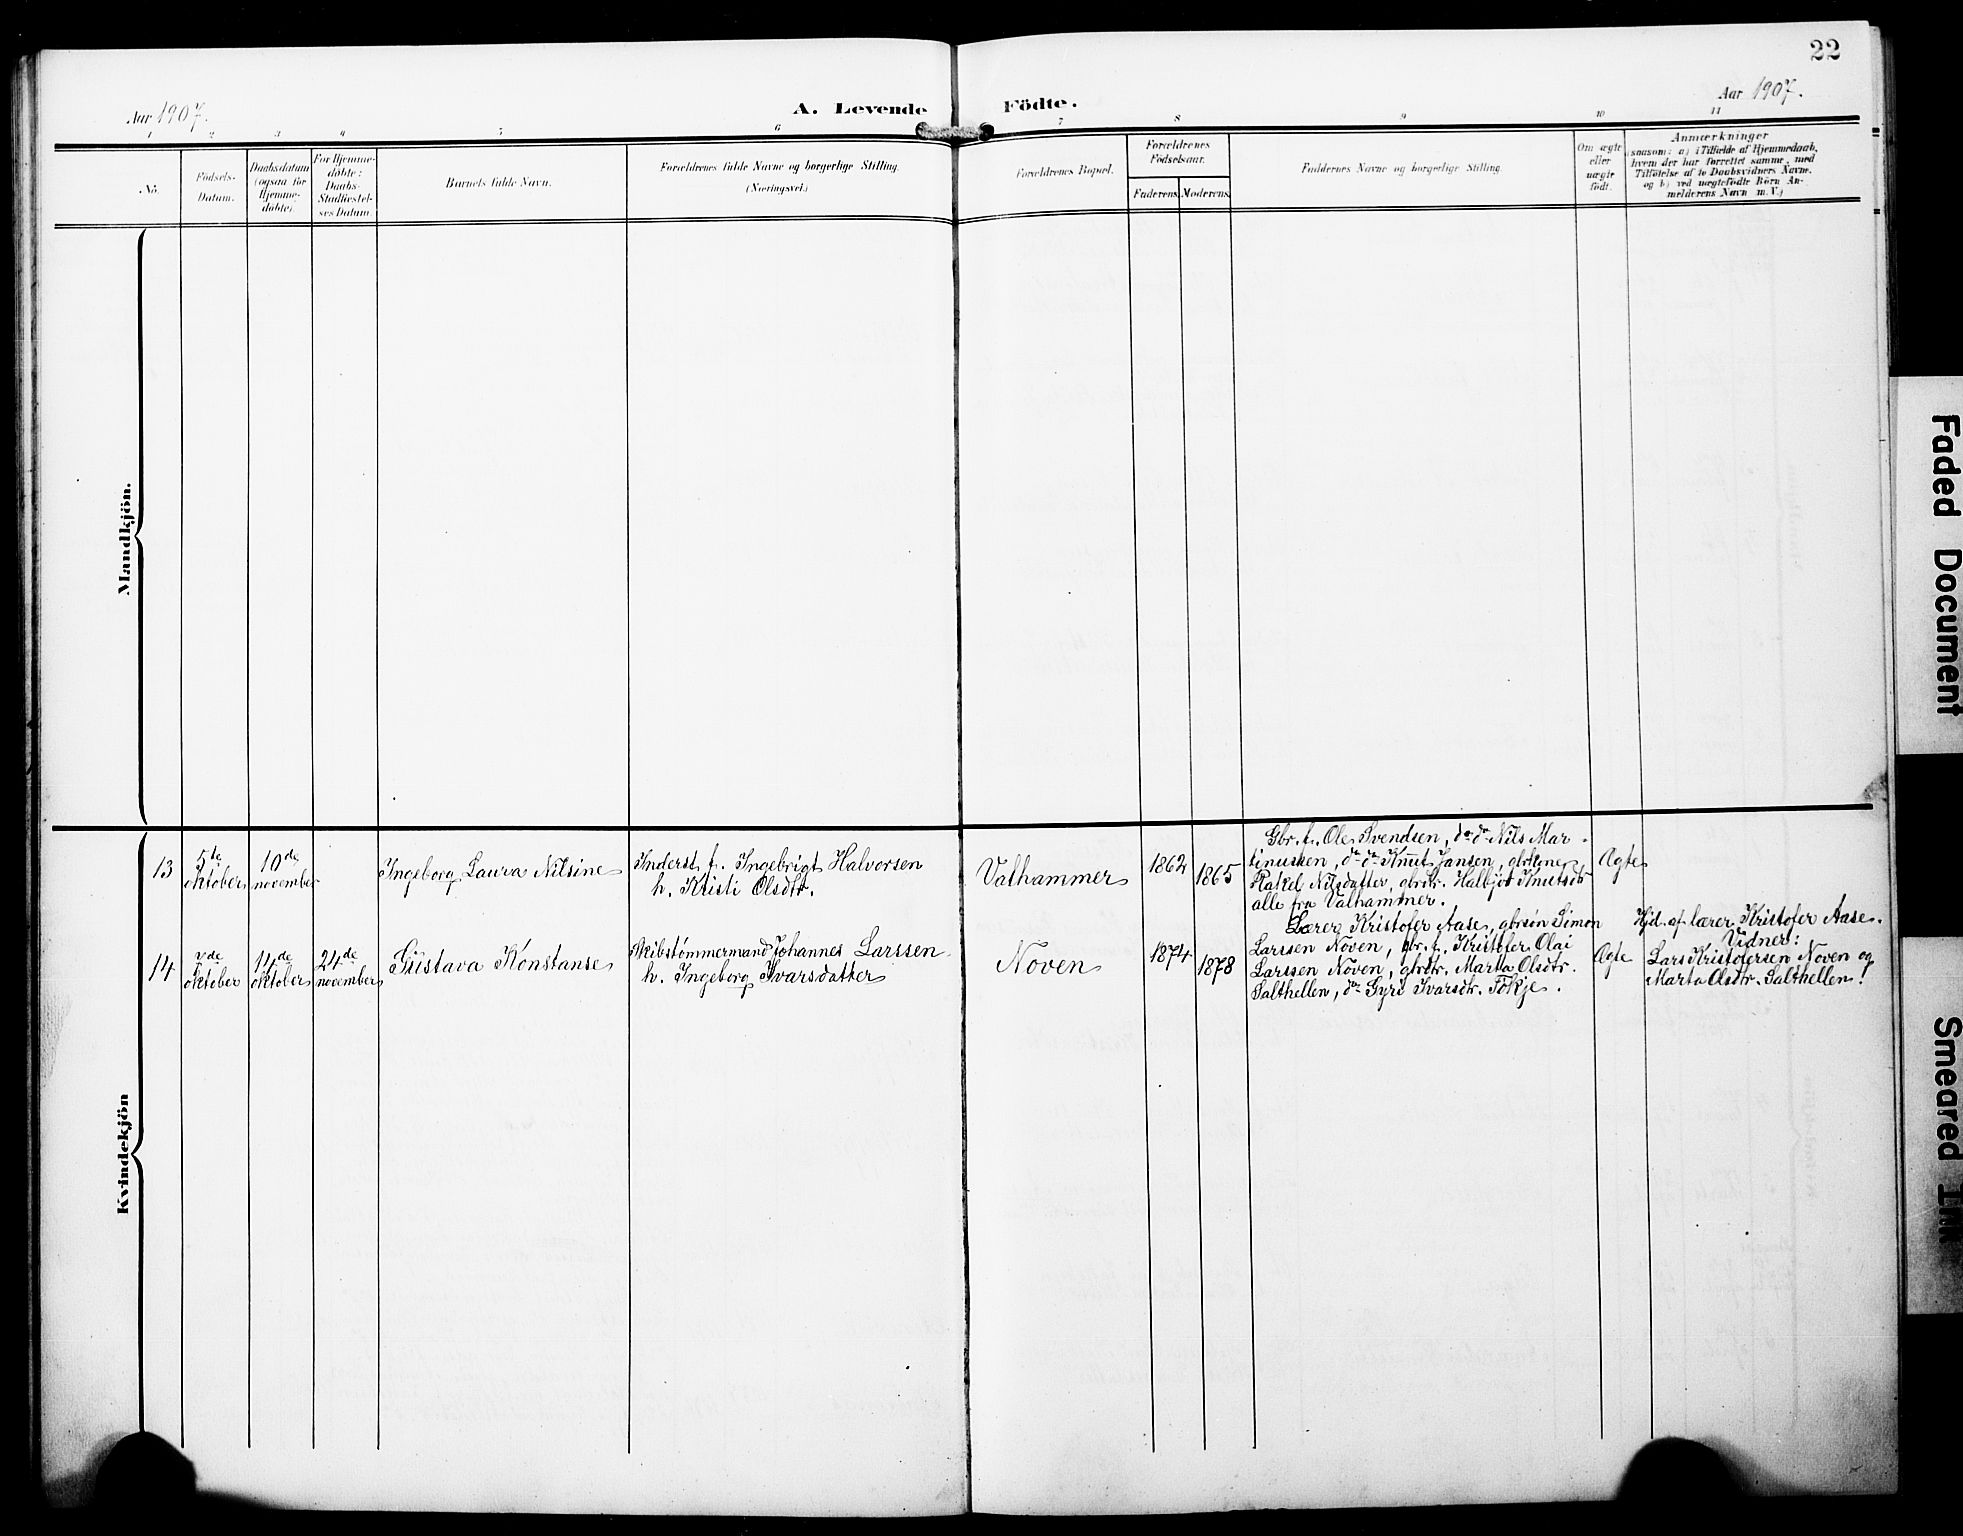 22
Aar 1907.
A. Levende Födte.
Aar 1907.
1 2 3 4 5 6 7 8 9 10 11
No.
Födsels-
Datum.
Daabsdatum
(ogsaa for
Hjemme-
döbte).
For Hjemme-
döbte:
Daabs-
Stadfæstel-
ses Datum
Barnets fulde Navn.
Forældrenes fulde Navne og borgerlige Stilling.
(Næringsvei.)
Forældrenes Bopæl.
Forældrenes
Födselsaar.
Faderens. Moderens.
Faddernes Navne og borgerlige Stilling.
Om ægte
eller
uægte
födt.
Anmærkninger
saasom: a) i Tilfælde af Hjemmedaab,
hvem der har forrettet samme, med
Tilföielse af to Daabsvidners Navne,
og b) ved uægtefödte Börn An-
melderens Navn m. V.)
Mandkjön.
Kvindekjön
13
5te
oktober
10de
november
Ingeborg Laura Nilsine
Inderst f. Ingebrigt Halvorsen
h. Kristi Olsdtr.
Valhammer
1862
1865
Gbr. f. Ole Svendsen, do do Nils Mar-
tinussen, do do Knut Jansen, gbrkone
Rakel Nilsdatter, gbrdtr. Halbjør Knutsdtr
alle fra Valhammer.
Ægte
14
oktober
14de
oktober
24de
november
Gustava Konstanse
Skibstømmermand Johannes Larssen
h. Ingeborg Ivarsdatter
Noven
1874
1878
Lærer Kristofer Aase, gbrsøn Simon
Larssen Noven, gbr. f. Kristofer Olai
Larssen Noven, gbrdtr. Marta Olsdtr.
Salthellen, do Gyri Ivarsdtr. Tokje.
Ægte
Hjd. af lærer Kristofer Aase.
Vidner:
Lars Kristofersen Noven og
Marta Olsdtr. Salthellen.
Faded Document
Smeared Ink